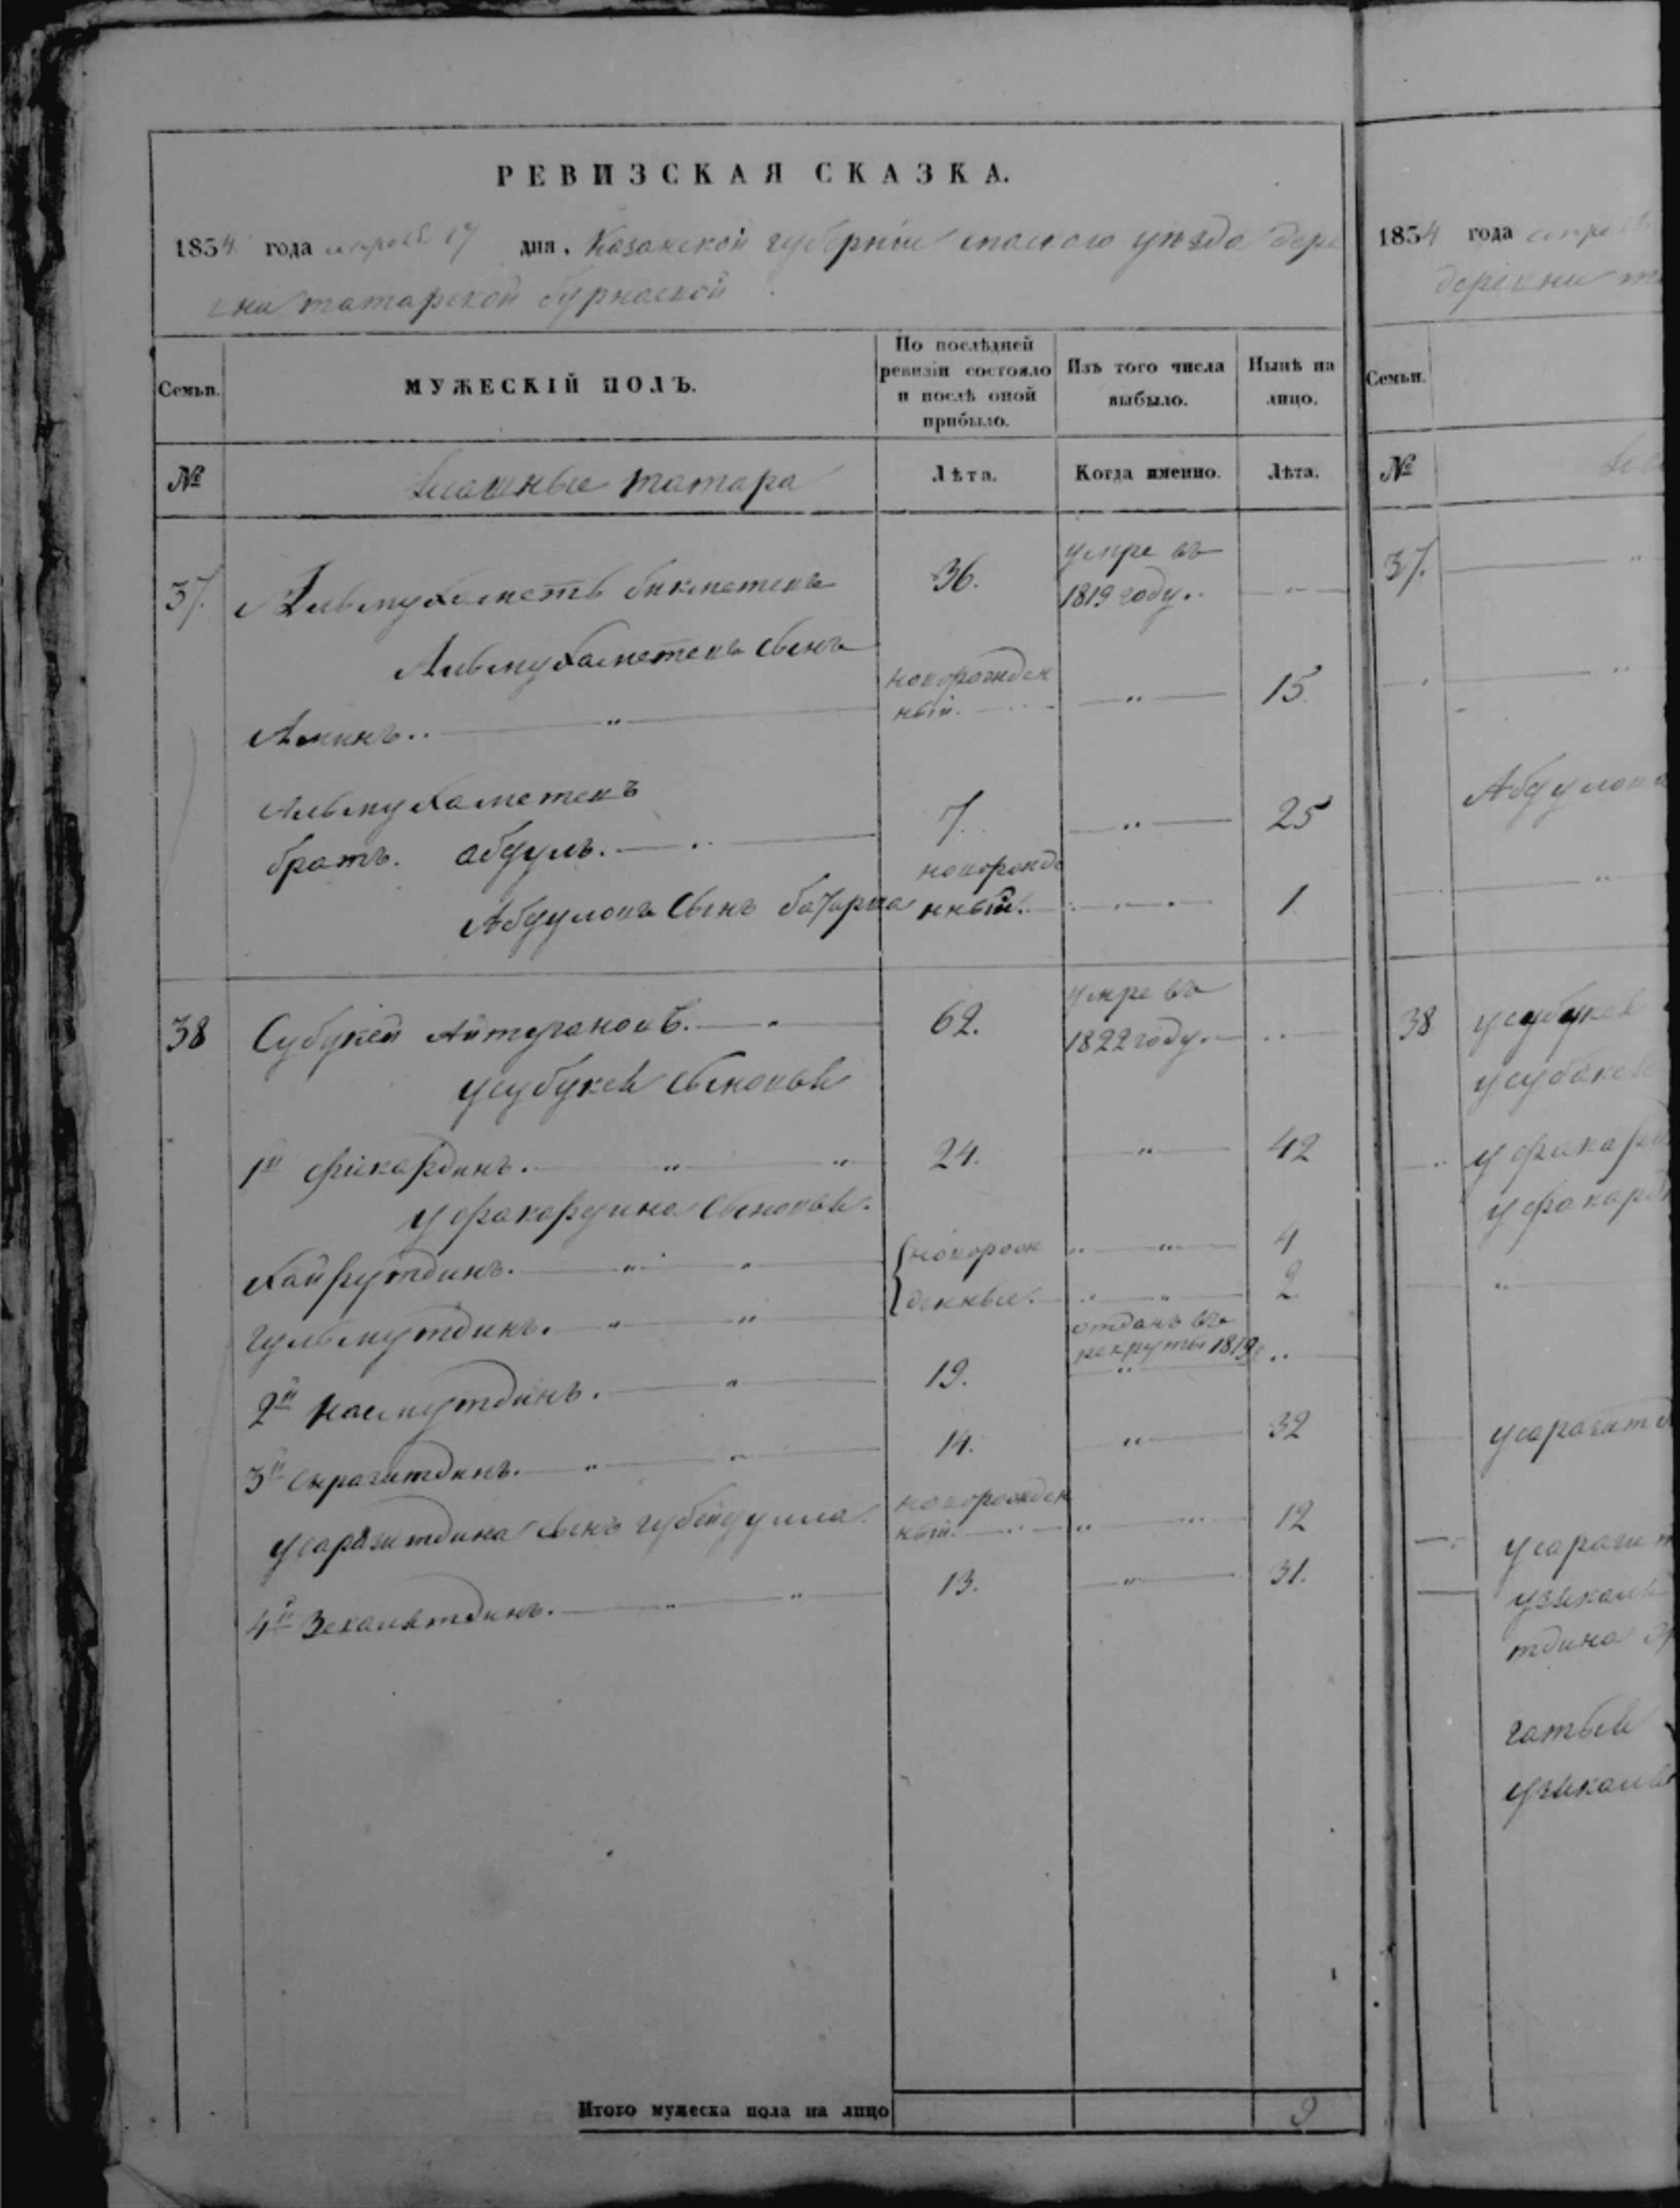 РЕВИЗСКАЯ СКАЗКА.
1834 года дня. Казанской губернии спаскаго уезда дере
вни татарской бурнаевой
Семьи.
МУЖЕСКІЙ ПОЛЪ.
По послѣдней ревизіи состояло и послѣ оной прибыло.
Изъ того числа выбыло.
Нынѣ на лицо.
№ татара Лѣта. Когда именно. Лѣта.
37. Альмухаметь бикметевъ 36. умре въ 1819 году.
Альмухаметевъ сынъ
Аминъ.. новорожден ный. 15.
Альмухаметевъ
братъ. абдулъ. 7. 25
Абдуловъ сынъ новорожде нный. 1
38 Субукей Айтугановъ. 62. умре въ 1822 году.
усубукея сыновья
1й факардинъ. 24. 42
у факардина сыновья.
хайрутдинъ. новорож 4
гульмутдинъ. денные. 2
2й насмутдинъ. 19. отданъ въ рекруты 1819
3й сирагитдинъ. 14. 32
у сарагитдина сынъ губейдулла. новорожден ный. 12
4й Зекалетдинъ. 13. 31.
Итого мужеска пола на лицо 9
1834 года
деревни
Семьи.
№
37.
38 усубукея